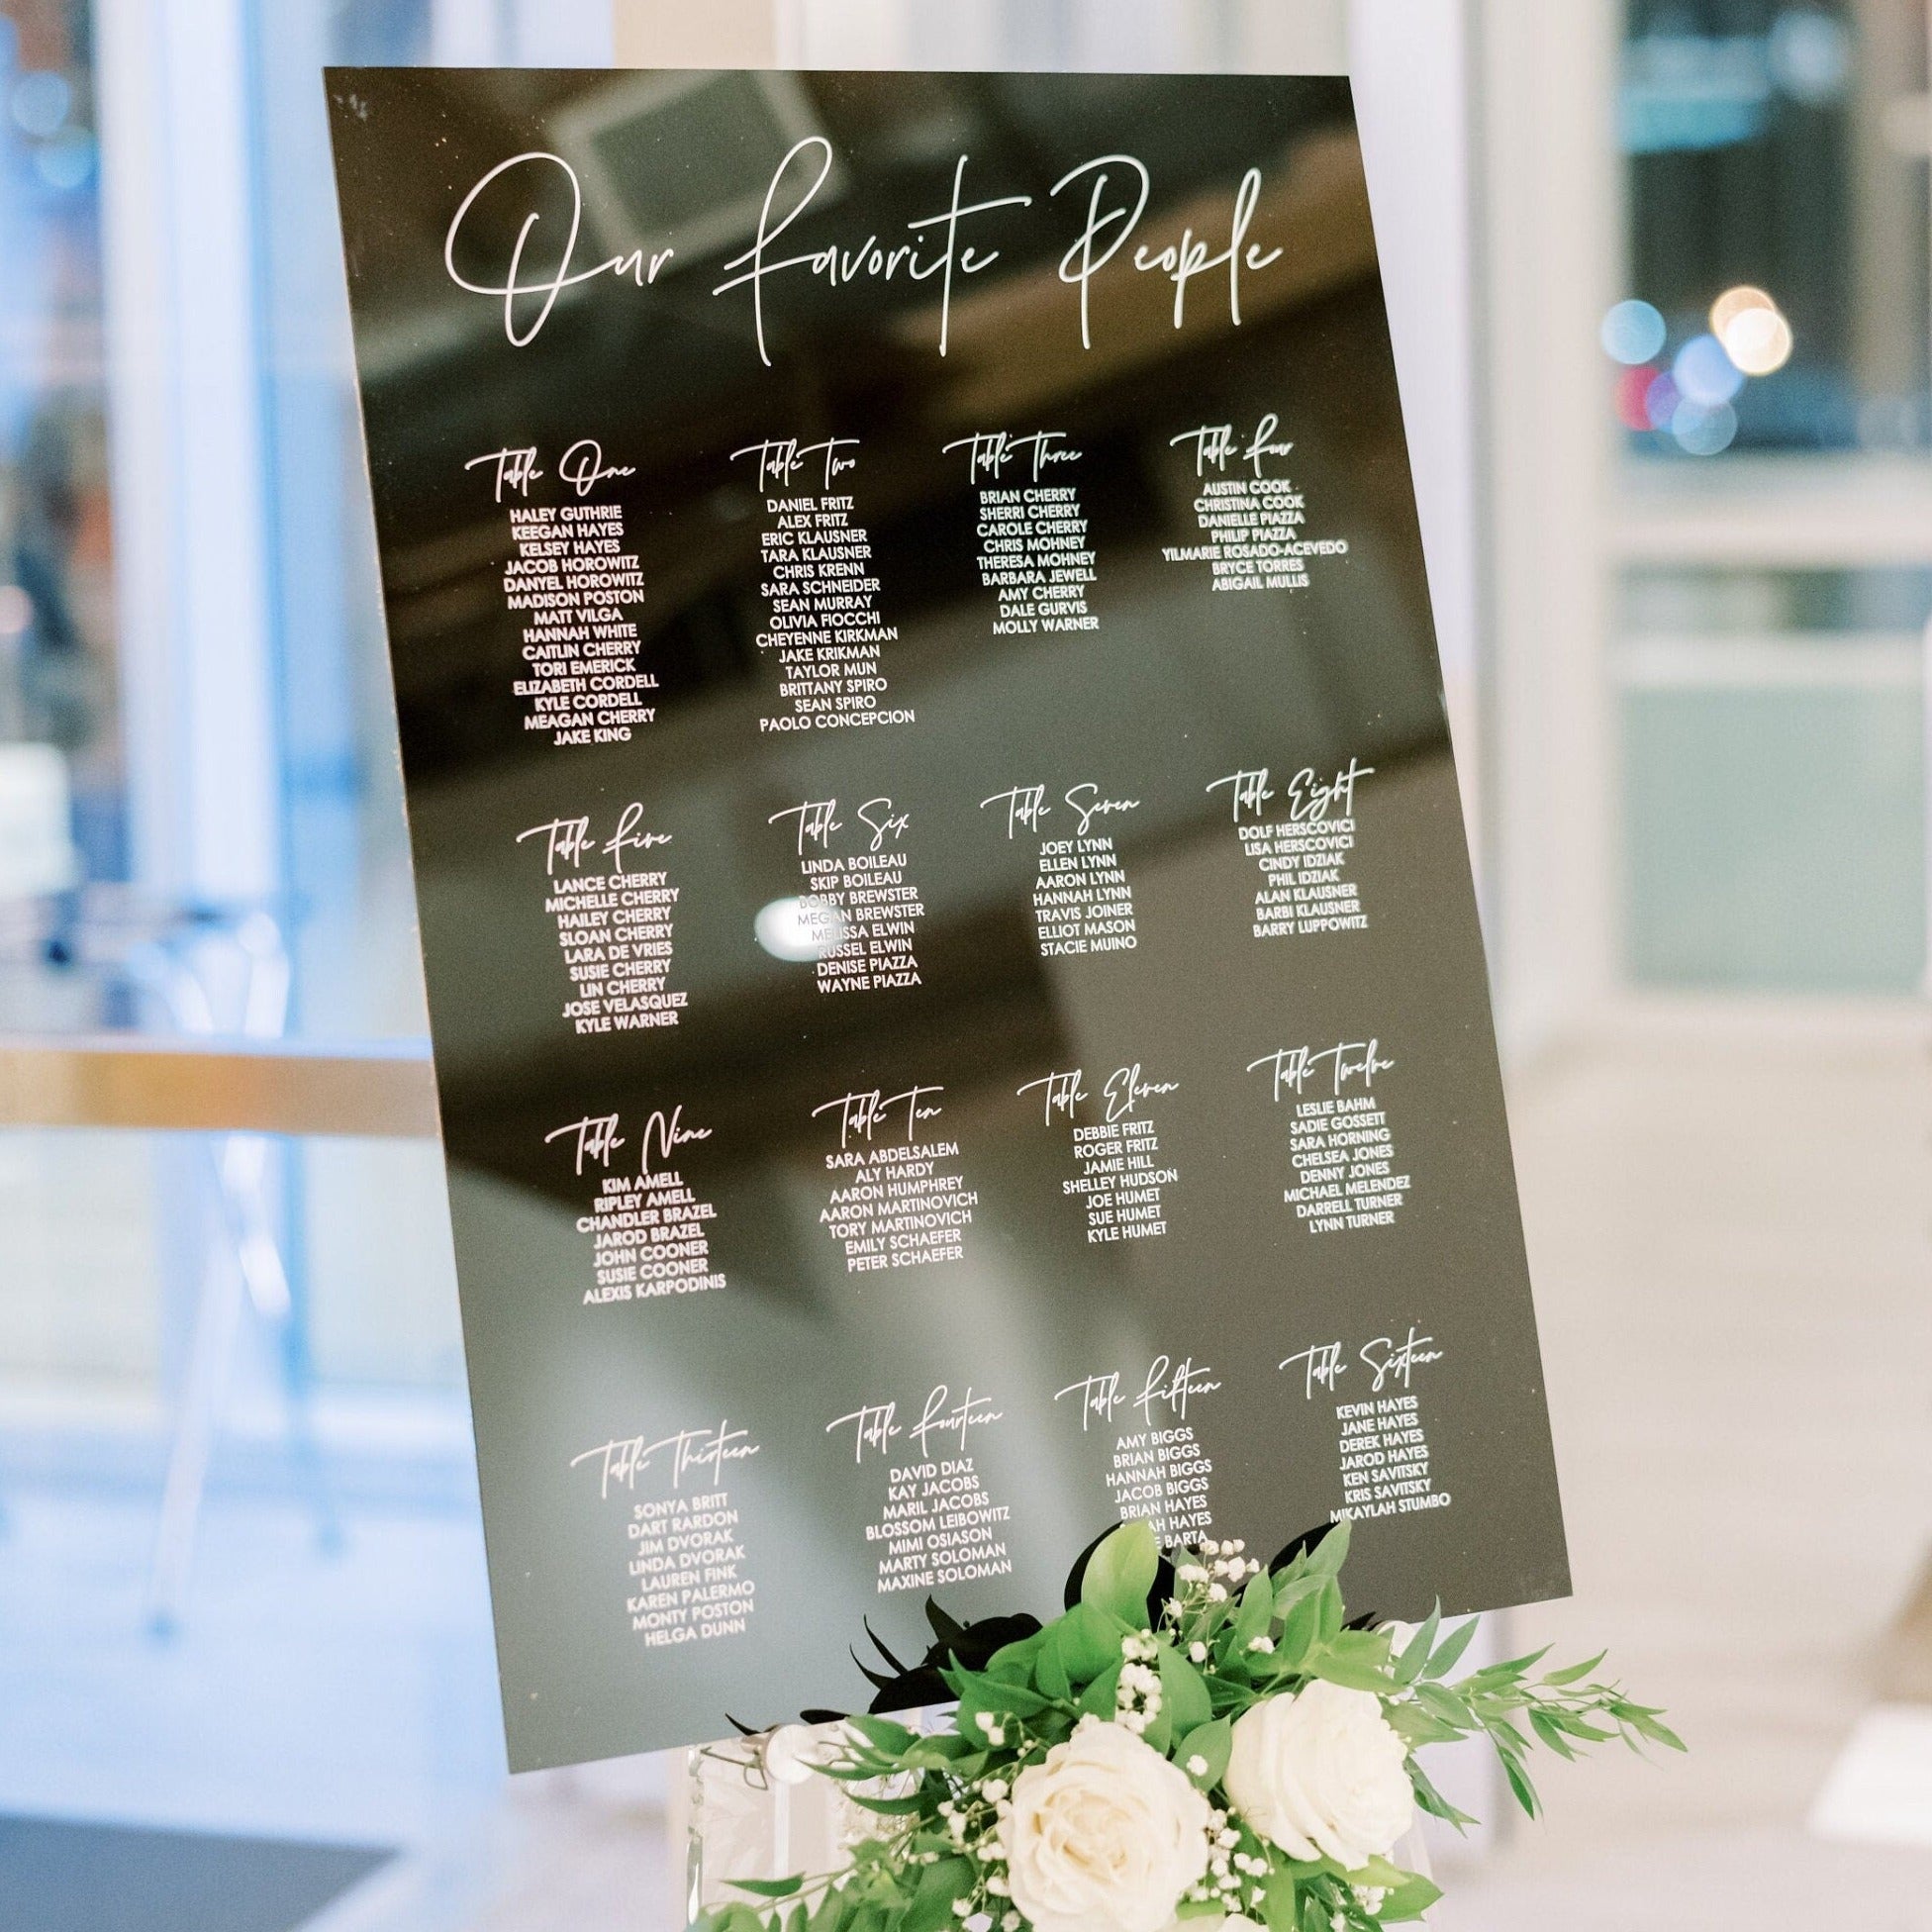 Our Favorite People
Table One
HALEY GUTHRIE
KEEGAN HAYES
KELSEY HAYES
JACOB HOROWITZ
DANYEL HOROWITZ
MADISON POSTON
MATT VILGA
HANNAH WHITE
CAITLIN CHERRY
TORI EMERICK
ELIZABETH CORDELL
KYLE CORDELL
MEAGAN CHERRY
JAKE KING
Table Two
DANIEL FRITZ
ALEX FRITZ
ERIC KLAUSNER
TARA KLAUSNER
CHRIS KRENN
SARA SCHNEIDER
SEAN MURRAY
OLIVIA FIOCCHI
CHEYENNE KIRKMAN
JAKE KRIKMAN
TAYLOR MUN
BRITTANY SPIRO
SEAN SPIRO
PAOLO CONCEPCION
Table Three
BRIAN CHERRY
SHERRI CHERRY
CAROLE CHERRY
CHRIS MOHNEY
THERESA MOHNEY
BARBARA JEWELL
AMY CHERRY
DALE GURVIS
MOLLY WARNER
Table Four
AUSTIN COOK
CHRISTINA COOK
DANIELLE PIAZZA
PHILIP PIAZZA
YILMARIE ROSADO-ACEVEDO
BRYCE TORRES
ABIGAIL MULLIS
Table Five
LANCE CHERRY
MICHELLE CHERRY
HAILEY CHERRY
SLOAN CHERRY
LARA DE VRIES
SUSIE CHERRY
LIN CHERRY
JOSE VELASQUEZ
KYLE WARNER
Table Six
LINDA BOILEAU
SKIP BOILEAU
BOBBY BREWSTER
MEGAN BREWSTER
MELISSA ELWIN
RUSSEL ELWIN
DENISE PIAZZA
WAYNE PIAZZA
Table Seven
JOEY LYNN
ELLEN LYNN
AARON LYNN
HANNAH LYNN
TRAVIS JOINER
ELLIOT MASON
STACIE MUINO
Table Eight
DOLF HERSCOVICI
LISA HERSCOVICI
CINDY IDZIAK
PHIL IDZIAK
ALAN KLAUSNER
BARBI KLAUSNER
BARRY LUPPOWITZ
Table Nine
KIM AMELL
RIPLEY AMELL
CHANDLER BRAZEL
JAROD BRAZEL
JOHN COONER
SUSIE COONER
ALEXIS KARPODINIS
Table Ten
SARA ABDELSALEM
ALY HARDY
AARON HUMPHREY
AARON MARTINOVICH
TORY MARTINOVICH
EMILY SCHAEFER
PETER SCHAEFER
Table Eleven
DEBBIE FRITZ
ROGER FRITZ
JAMIE HILL
SHELLEY HUDSON
JOE HUMET
SUE HUMET
KYLE HUMET
Table Twelve
LESLIE BAHM
SADIE GOSSETT
SARA HORNING
CHELSEA JONES
DENNY JONES
MICHAEL MELENDEZ
DARRELL TURNER
LYNN TURNER
Table Thirteen
SONYA BRITT
DART RARDON
JIM DVORAK
LINDA DVORAK
LAUREN FINK
KAREN PALERMO
MONTY POSTON
HELGA DUNN
Table Fourteen
DAVID DIAZ
KAY JACOBS
MARIL JACOBS
BLOSSOM LEIBOWITZ
MIMI OSIASON
MARTY SOLOMAN
MAXINE SOLOMAN
Table Fifteen
AMY BIGGS
BRIAN BIGGS
HANNAH BIGGS
JACOB BIGGS
BRIAN HAYES
HAYES
BARTA
Table Sixteen
KEVIN HAYES
JANE HAYES
DEREK HAYES
JAROD HAYES
KEN SAVITSKY
KRIS SAVITSKY
MIKAYLAH STUMBO